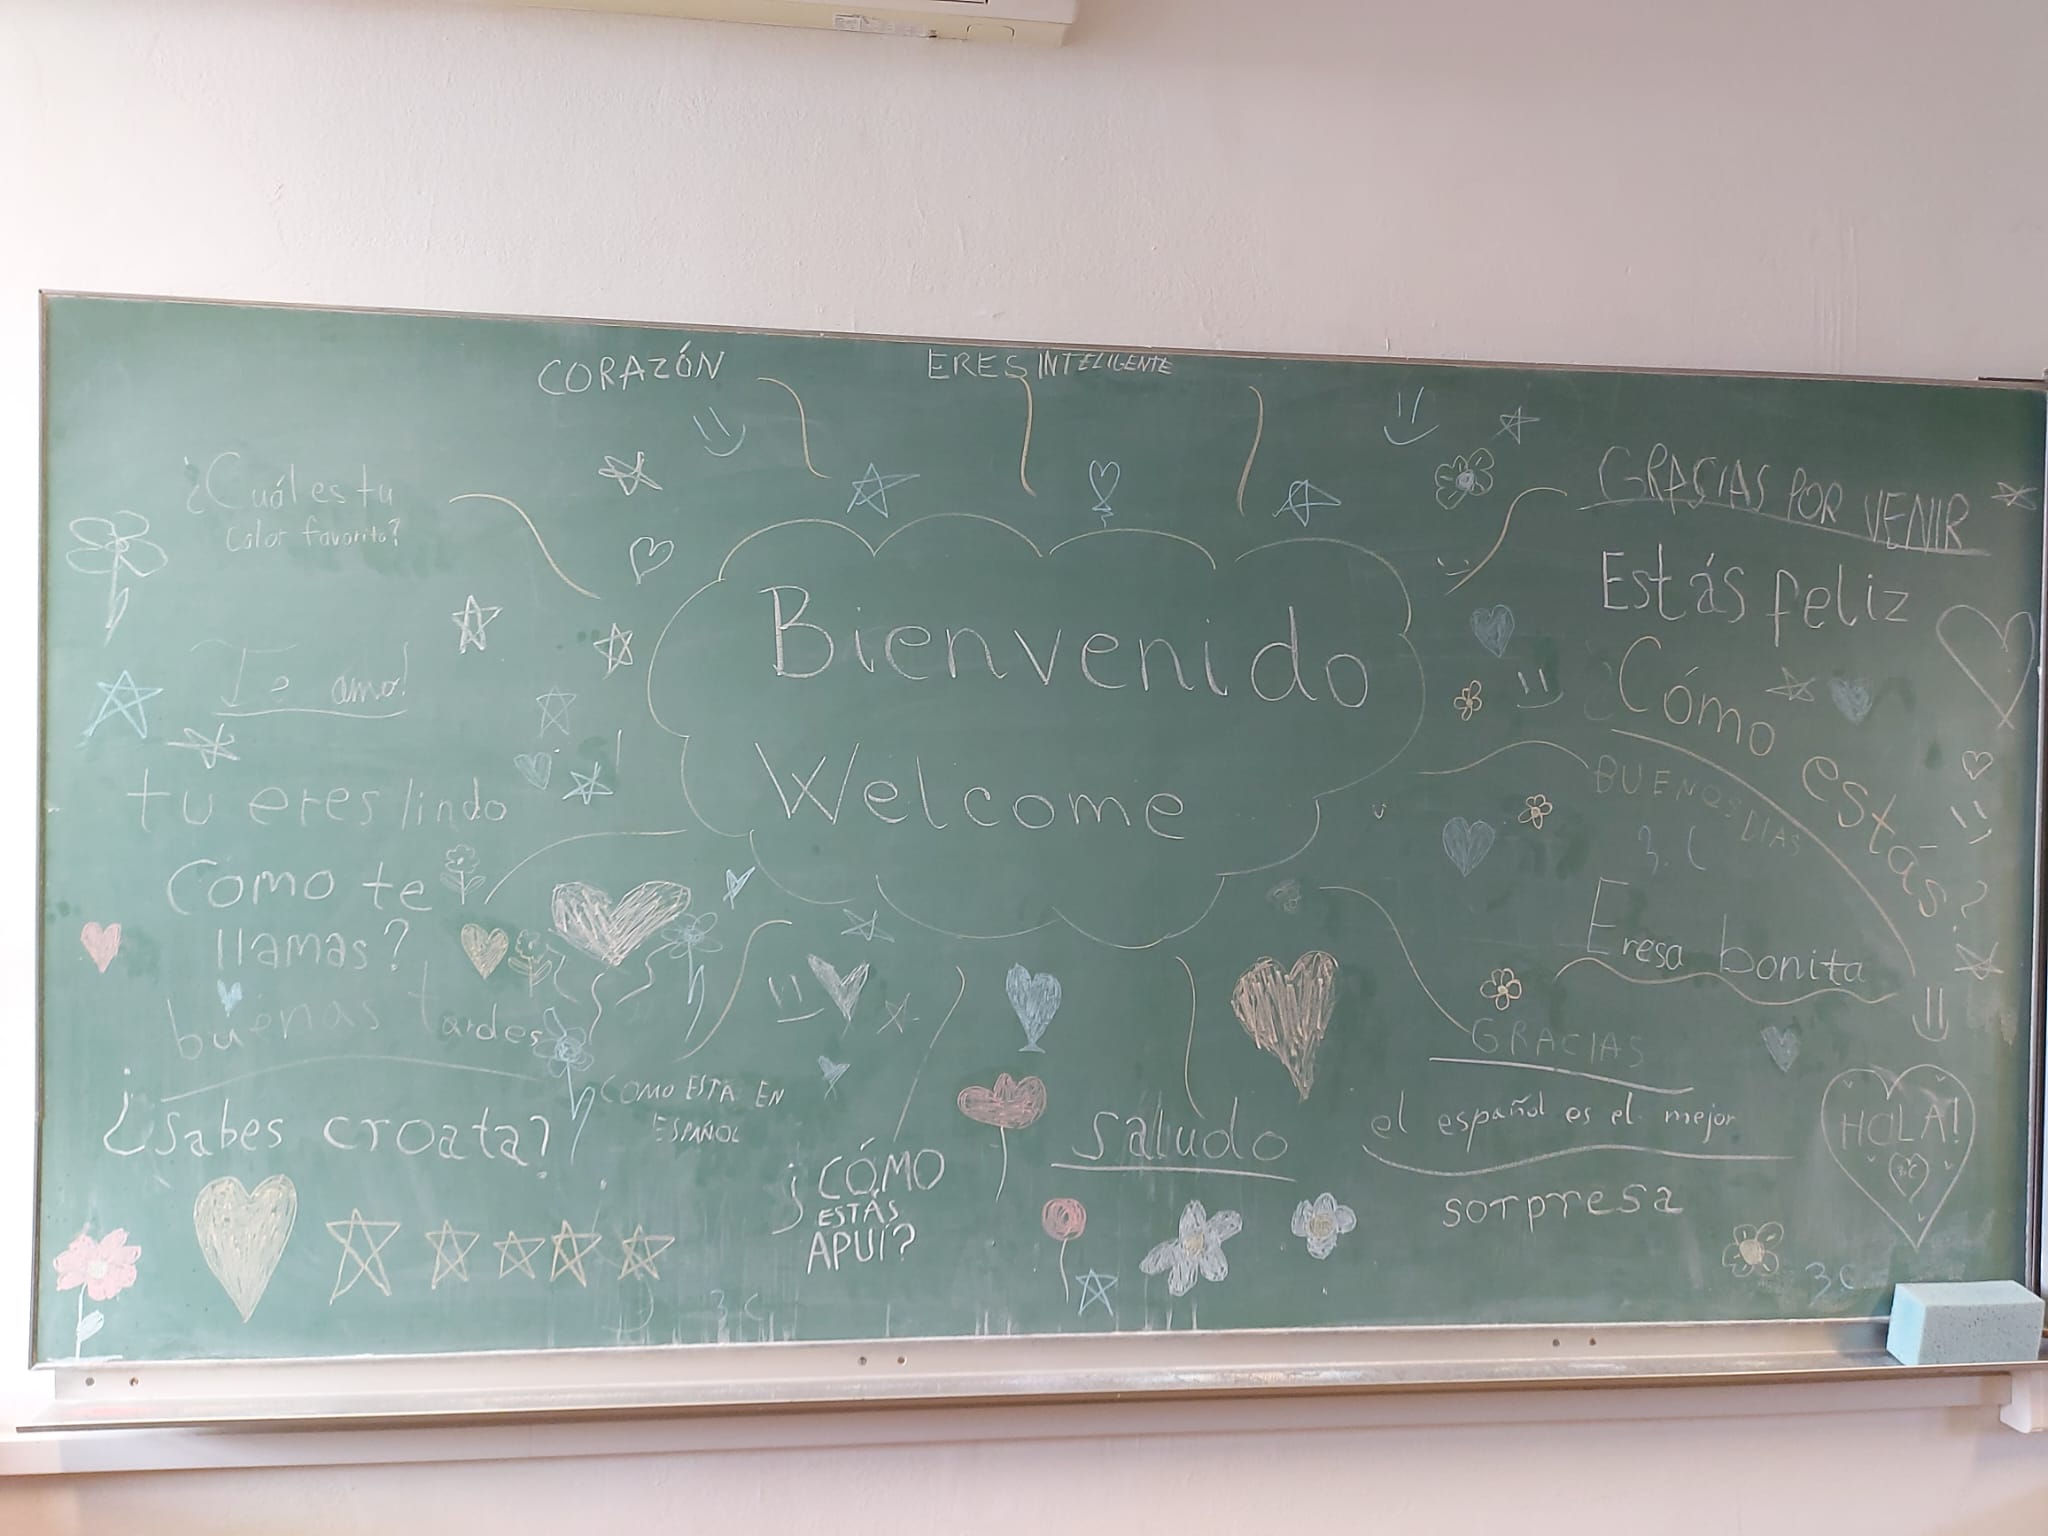 CORAZÓN
ERES INTELIGENTE
¿Cuál es tu
color favorito?
Te amo!
tu eres lindo
Como te
llamas?
buenas tardes
¿Sabes croata?
COMO ESTA EN
ESPAÑOL
¿CÓMO
ESTÁS
APUÍ?
3.C
Bienvenido
Welcome
saludo
GRACIAS POR VENIR
Estás feliz
¿Cómo estás?
BUENOS DIAS
3.C
Eresa bonita
GRACIAS
el español es el mejor
sorpresa
HOLA!
3.C
3.C